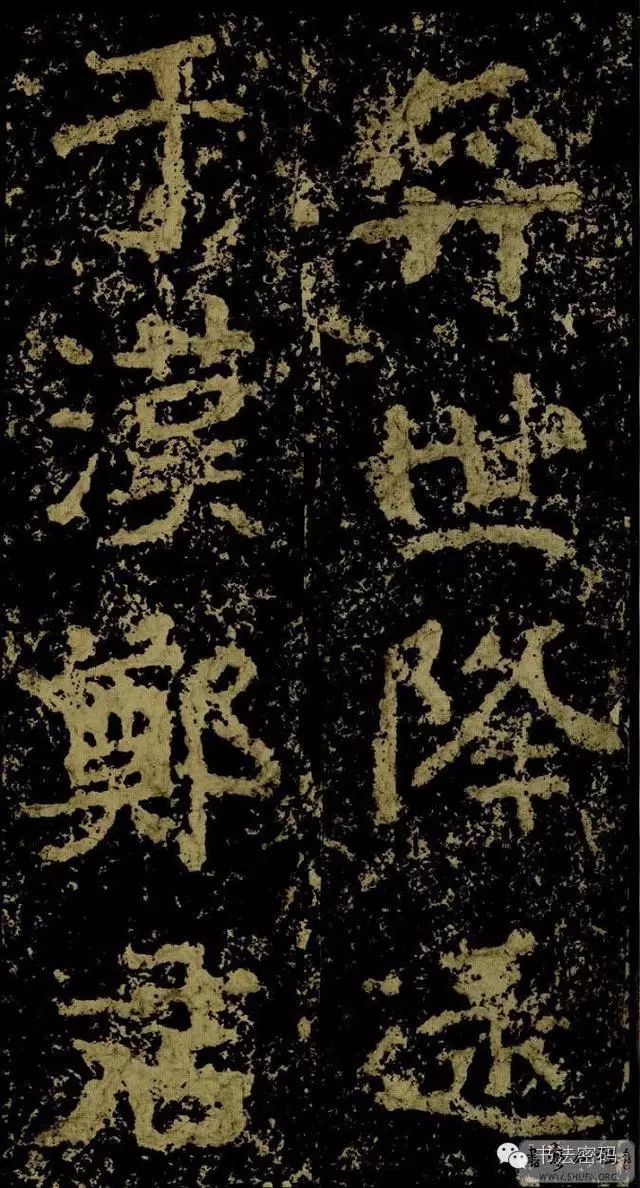 弈世降逮
于漢鄭君
书法密码
WWW.SHUFA.ORG